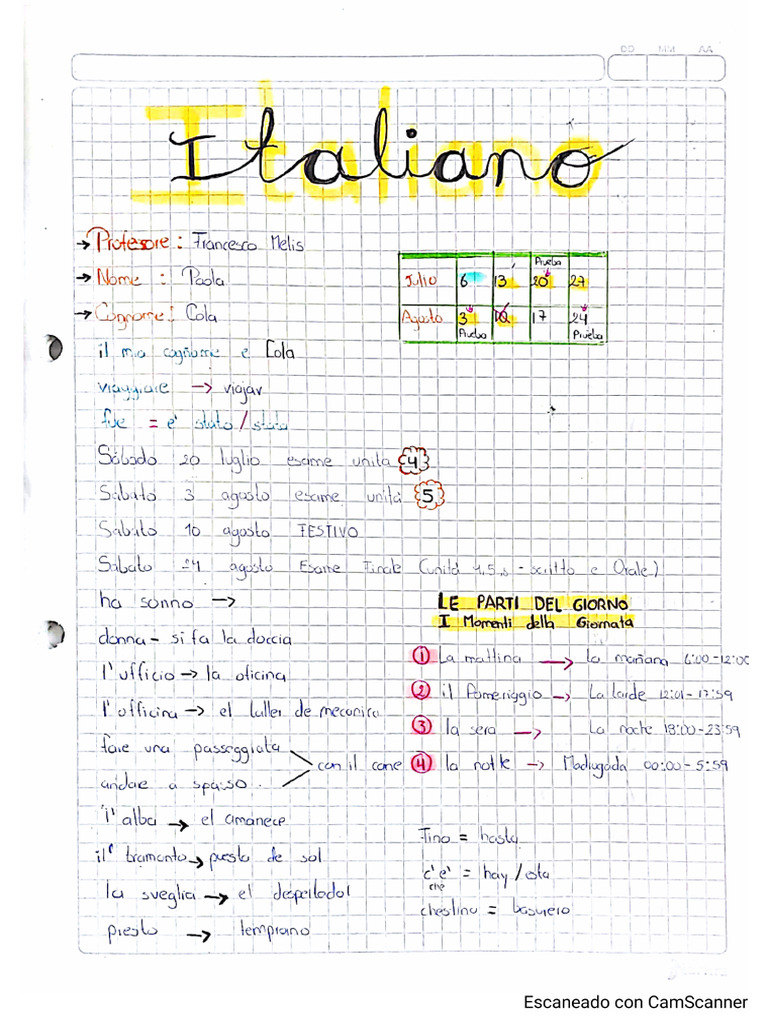 DD MM AA
Italiano
→ Profesore : Francesco Melis
→ Nome : Paola
→ Cognome : Cola
Prueba
Julio 6 13 20 27
Agosto 3 10 17 24
Prueba Prueba
il mio cognome e Cola
viaggiare → viajar
fue = e' stato / stata
Sábado 20 luglio esame unita 4
Sabato 3 agosto esame unitá 5
Sabato 10 agosto FESTIVO
Sabato 24 agosto Esame Finale (unitá 4,5,s - scritto e Orale)
ha sonno →
donna - si fa la doccia
l'ufficio → la oficina
l'officina → el taller de mecanica
fare una passeggiata
andare a spasso.
con il cane
'l'alba → el amanece
il tramonto → puesto de sol
la sveglia → el despertador
presto → temprano
LE PARTI DEL GIORNO
I Momenti della Giornata
1 La mattina → la mañana 6:00-12:00
2 il Pomeriggio → La tarde 12:01-17:59
3 la sera → La noche 18:00-23:59
4 la notte → Madrugada 00:00-5:59
Fino = hasta
c'e' = hay / esta
che
chestino = basurero
Escaneado con CamScanner